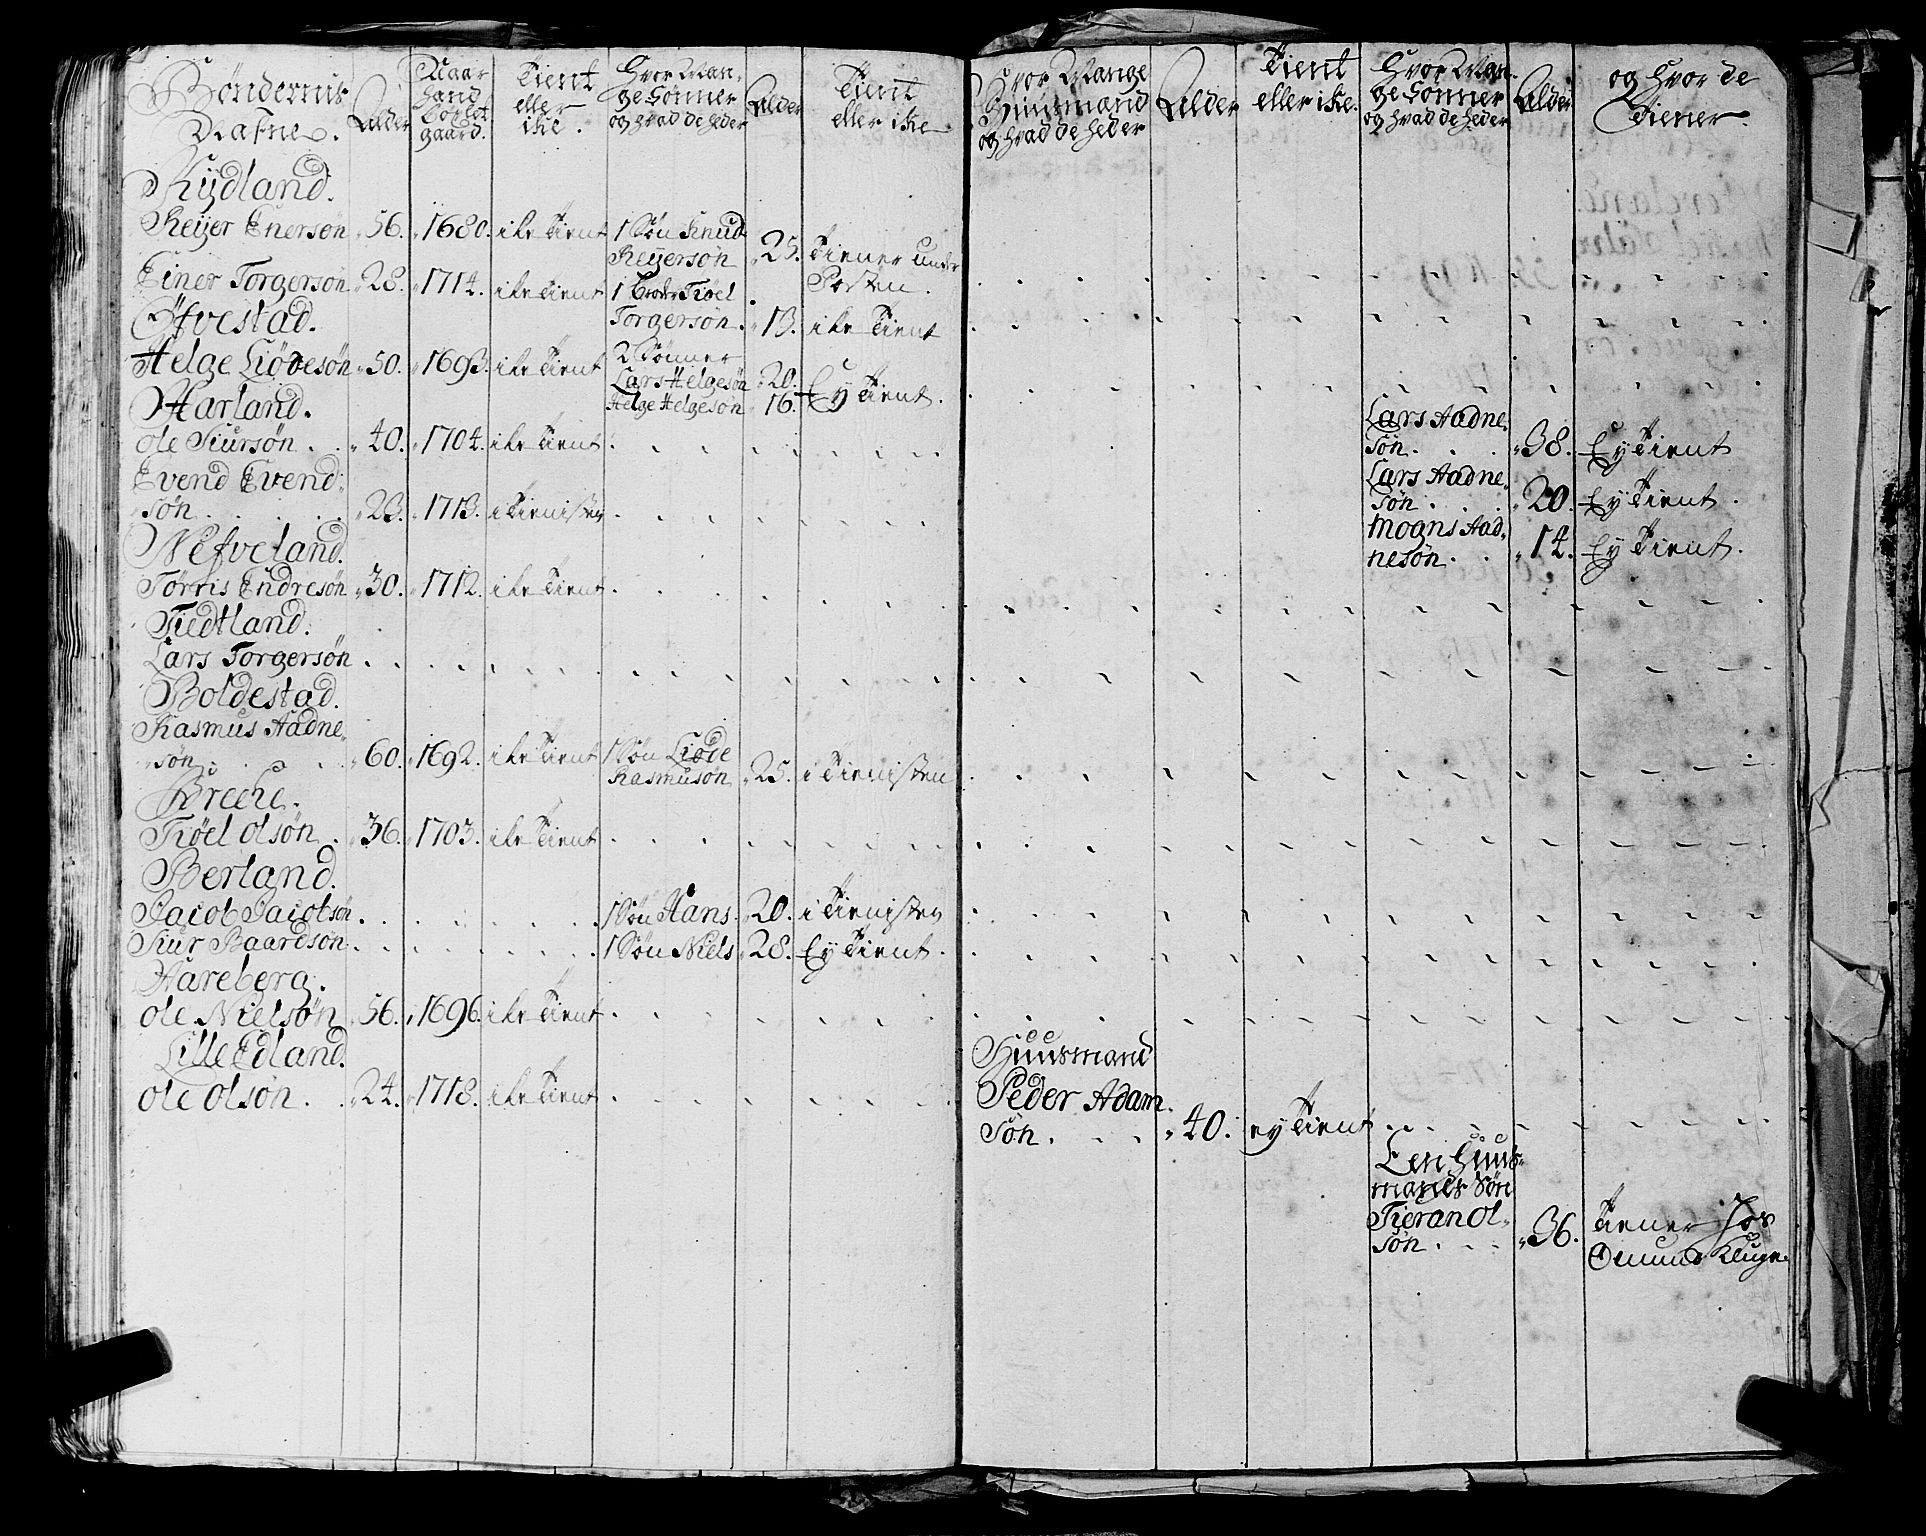 Bøndernis Nafne. | Alder | Naar hand bøxlet gaard. | Tient eller ike. | Hvor Man- ge Sønner og hvad de heder | Alder | Tient eller ike | Hvor Mange Huusmænd og hvad de heder | Alder | Tient eller ike. | Hvor Man- ge Sønner og hvad de heder | Alder | og hvor de Tiener.
Rydland.
Reijer Enersøn 56. 1680. ike Tient 1 Søn Knud
Reijersøn 25. Tiener under
Einer Torgersøn 28. 1714. ike Tient 1 Broder Tiøel Posten.
Torgersøn. 13. ike Tient
Øfvestad.
Helge Liødesøn 50. 1693. ike Tient 2 Sønner
Lars Helgesøn 20.
Helge Helgesøn 16. Ey Tient.
Harland.
Ole Siursøn 40. 1704. ike Tient
Lars Aadne-
søn. 38. Ey Tient
Evend Evend-
søn 23. 1713. i Tienisten
Lars Aadne-
søn 20. Ey Tient.
Mogns Aad-
nesøn. 14. Ey Tient.
Nefveland.
Torris Endresøn 30. 1712. ike Tient
Tiedtland.
Lars Torgersøn
Boldestad.
Rasmus Aadne-
søn 60. 1692. ike Tient 1 Søn Liøde
Rasmusøn 25. i Tienisten
Breche.
Tiøel Olsøn 36. 1703. ike Tient
Berland.
Jacob Jacobsøn 1 Søn Hans 20. i Tienisten
Siur Baardsøn 1 Søn Niels 28. Ey Tient.
Hareberg.
Ole Nielsøn 56. 1696. ike Tient
Lille Edland.
Ole Olsøn. 24. 1718. ike Tient
Huusmand
Peder Adam-
søn 40. ey Tient
Een Huus-
mands Søn
Tieran Ol-
søn 36. Tiener Hos
Omund